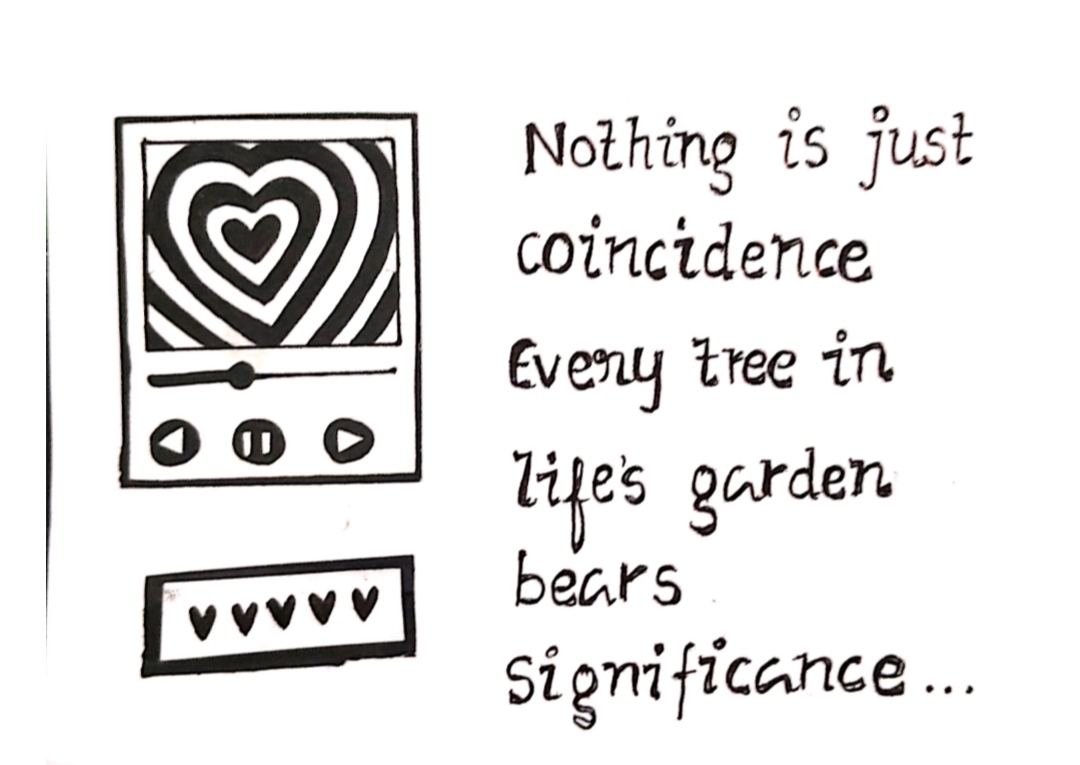 Nothing is just
coincidence
Every tree in
life's garden
bears
significance...